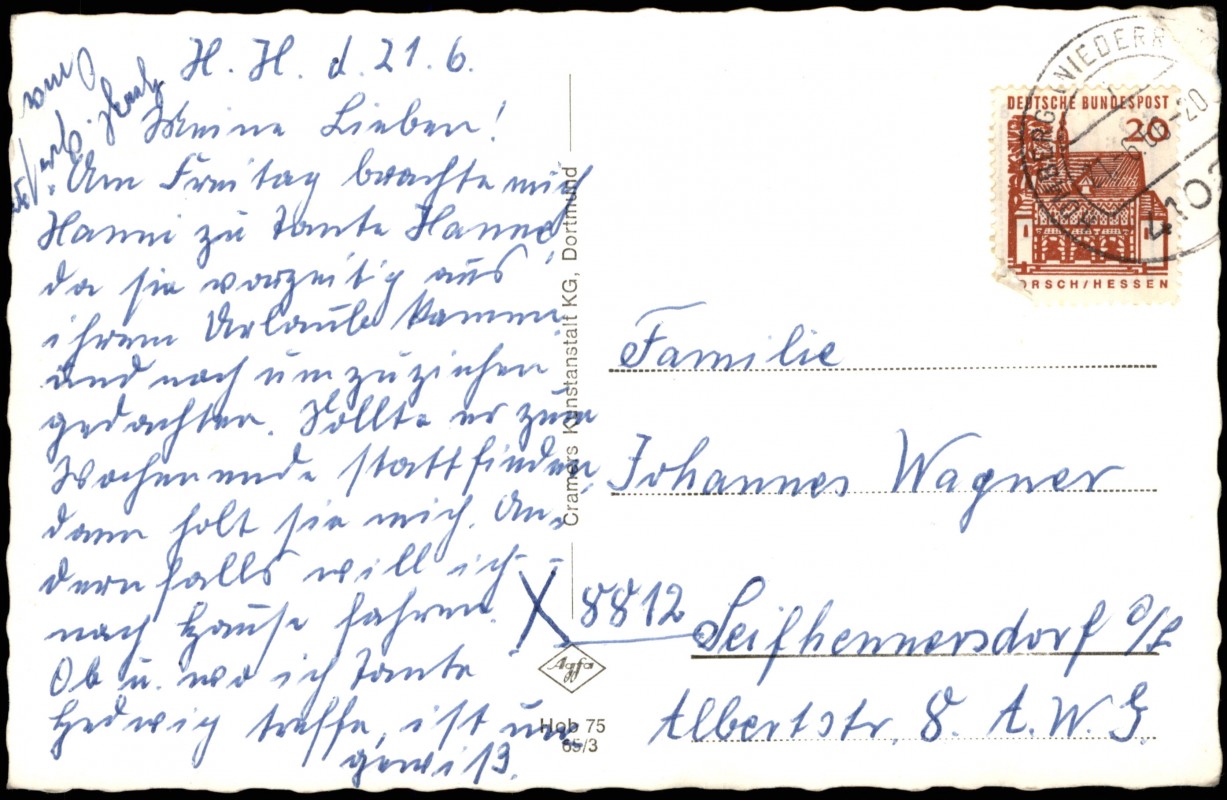 H. H. d. 21. 6.
Meine Lieben!
Am Freitag brachte mich
Hanni zu Tante Hanne,
da sie vorzeitig aus
ihrem Urlaub kamen
und noch umzuziehen
gedachten. Sollte es zum
Wochenende stattfinden
dann holt sie mich. An-
dernfalls will ich
nach Hause fahren.
Ob u. wo ich Tante
Hedwig treffe, ist un-
gewiß.
Cramers Kunstanstalt KG, Dortmund
Agfa
Hob 75
65/3
DEUTSCHE BUNDESPOST
20
LORSCH/HESSEN
410
Familie
Johannes Wagner
X 8812 Seifhennersdorf O/L
Albertstr. 8. A.W.G.